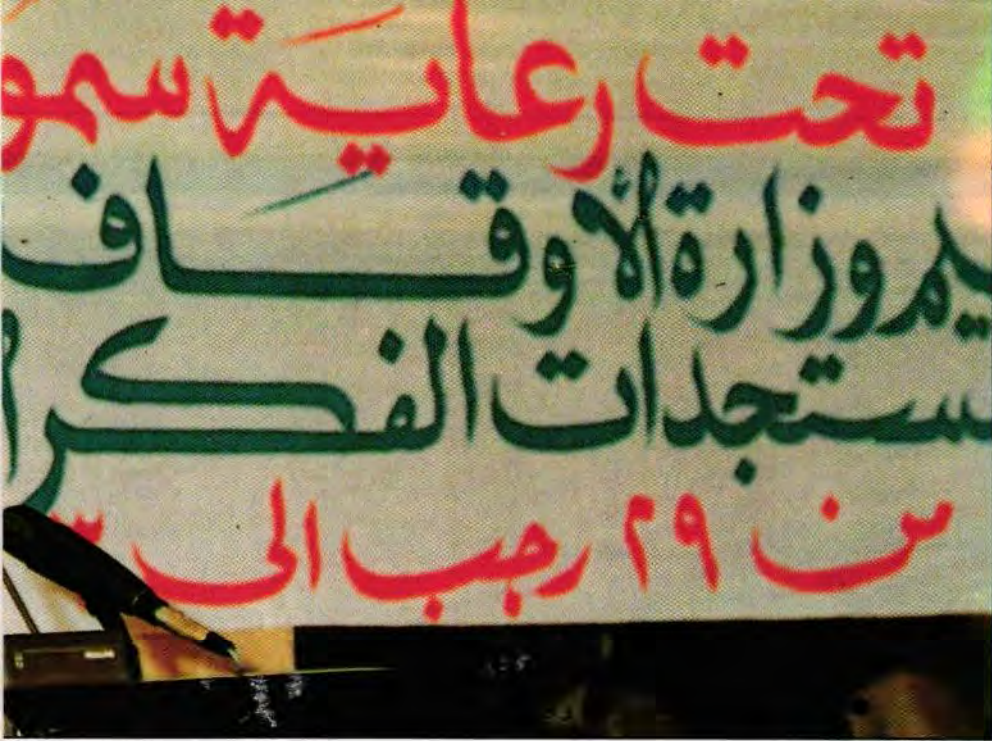 تحت رعاية سمو
وزارة الأوقاف
مستجدات الفكر
من ٢٩ رجب الى